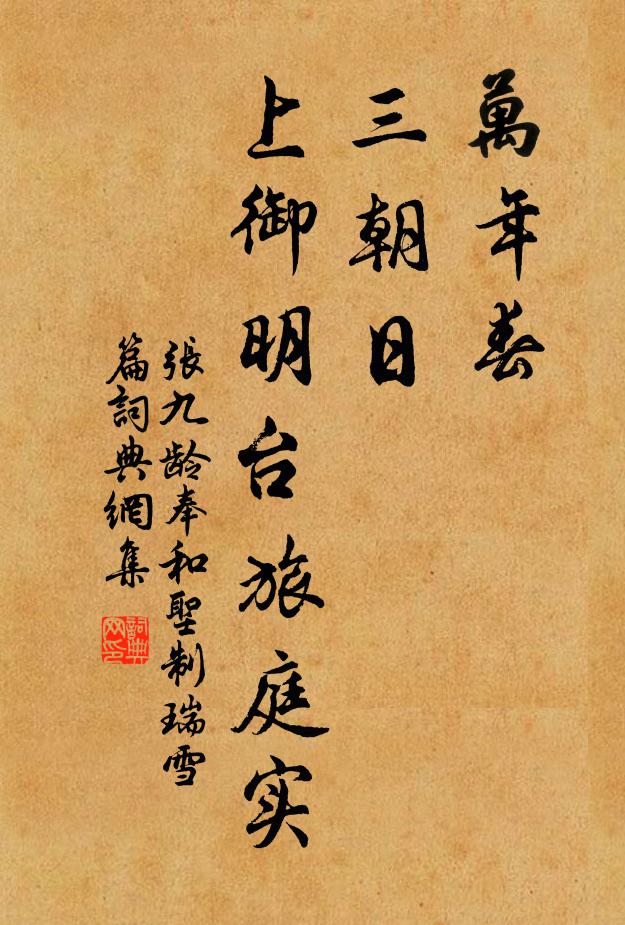 萬年春
三朝日
上御明台旅庭实
張九齡奉和聖制瑞雪
篇詞典網集
詞典
网印